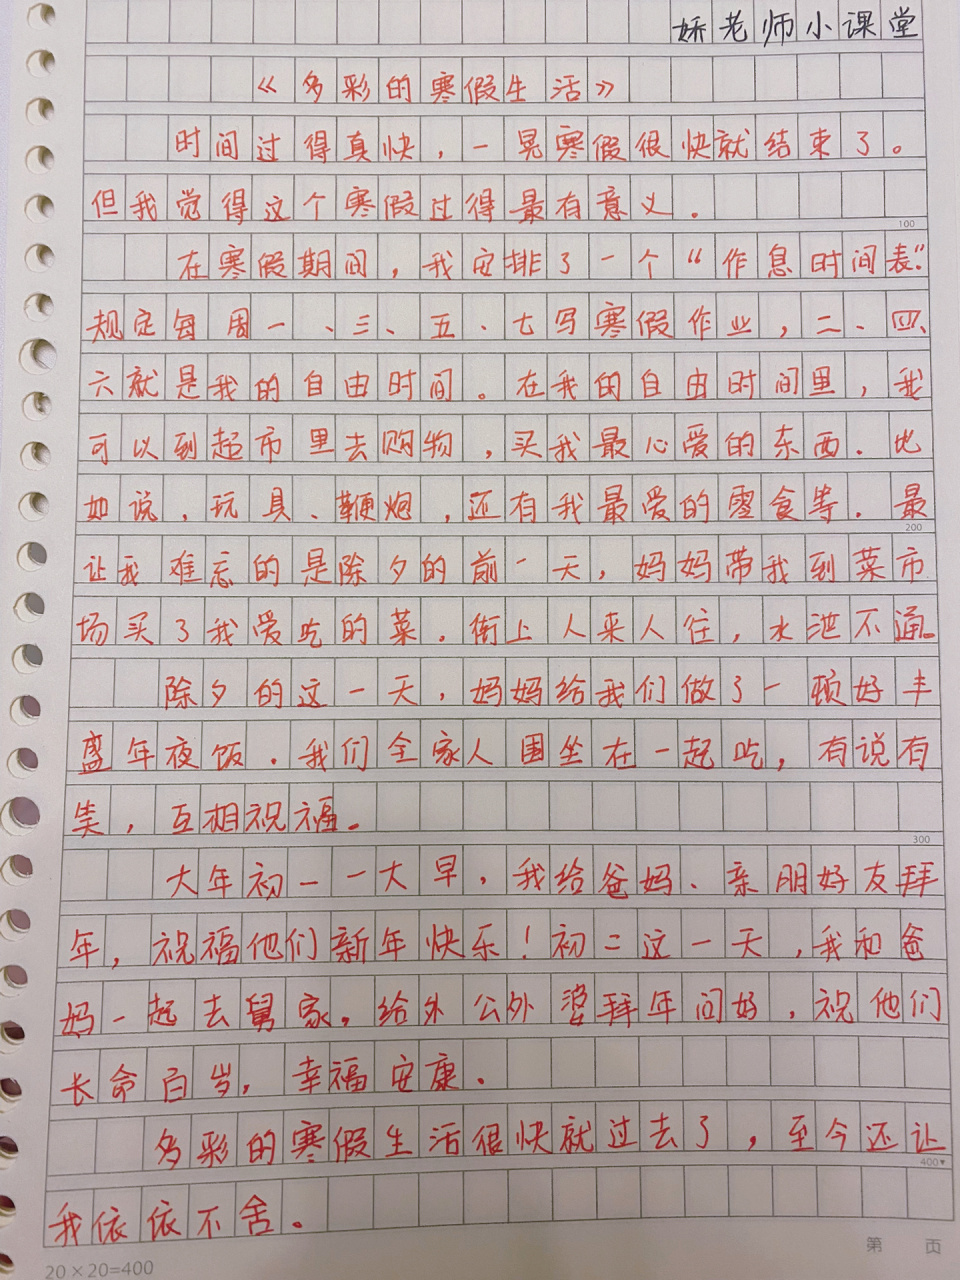 娇老师小课堂
《多彩的寒假生活》
时间过得真快，一晃寒假很快就结束了。
但我觉得这个寒假过得最有意义。
100
在寒假期间，我安排了一个“作息时间表”.
规定每周一、三、五、七写寒假作业，二、四、
六就是我的自由时间。在我的自由时间里，我
可以到超市里去购物，买我最心爱的东西．比
如说，玩具、鞭炮，还有我最爱的零食等．最
200
让我难忘的是除夕的前一天，妈妈带我到菜市
场买了我爱吃的菜．街上人来人往，水泄不通。
除夕的这一天，妈妈给我们做了一顿好丰
盛年夜饭．我们全家人围坐在一起吃，有说有
笑，互相祝福。
300
大年初一一大早，我给爸妈、亲朋好友拜
年，祝福他们新年快乐！初二这一天，我和爸
妈一起去舅家，给外公外婆拜年问好，祝他们
长命百岁，幸福安康．
多彩的寒假生活很快就过去了，至今还让
400▼
我依依不舍．
第 页
20×20=400